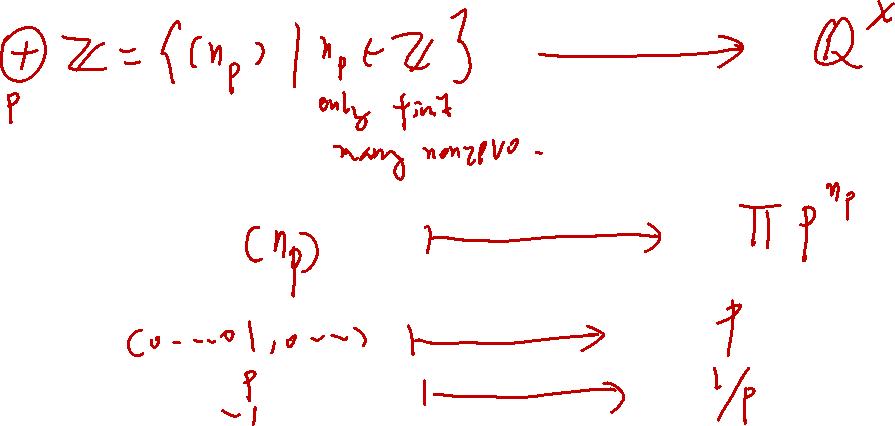 ⊕ ℤ = { (n_p) | n_p ∈ ℤ } ⟶ ℚ^×
p
only finit
many nonzero.
(n_p) ⟼ ∏ p^{n_p}
(0---0 1, 0---) ⟼ p
p
-1 ⟼ 1/p